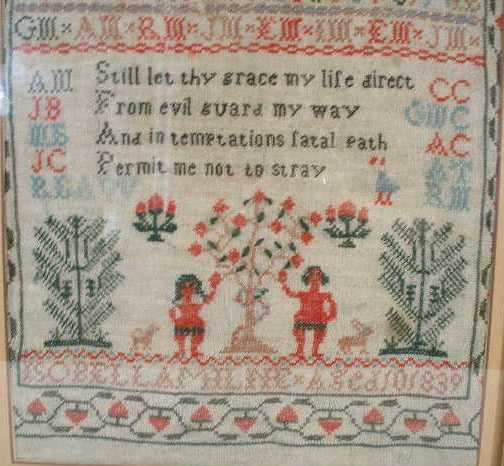 GM × AM × RM × JM × EM × IM × EM × JM ×
AM Still let thy grace my life direct CC
JB From evil guard my way GMC
And in temptations fatal path AC
JC Permit me not to stray AT
RM
Aged 10 1839